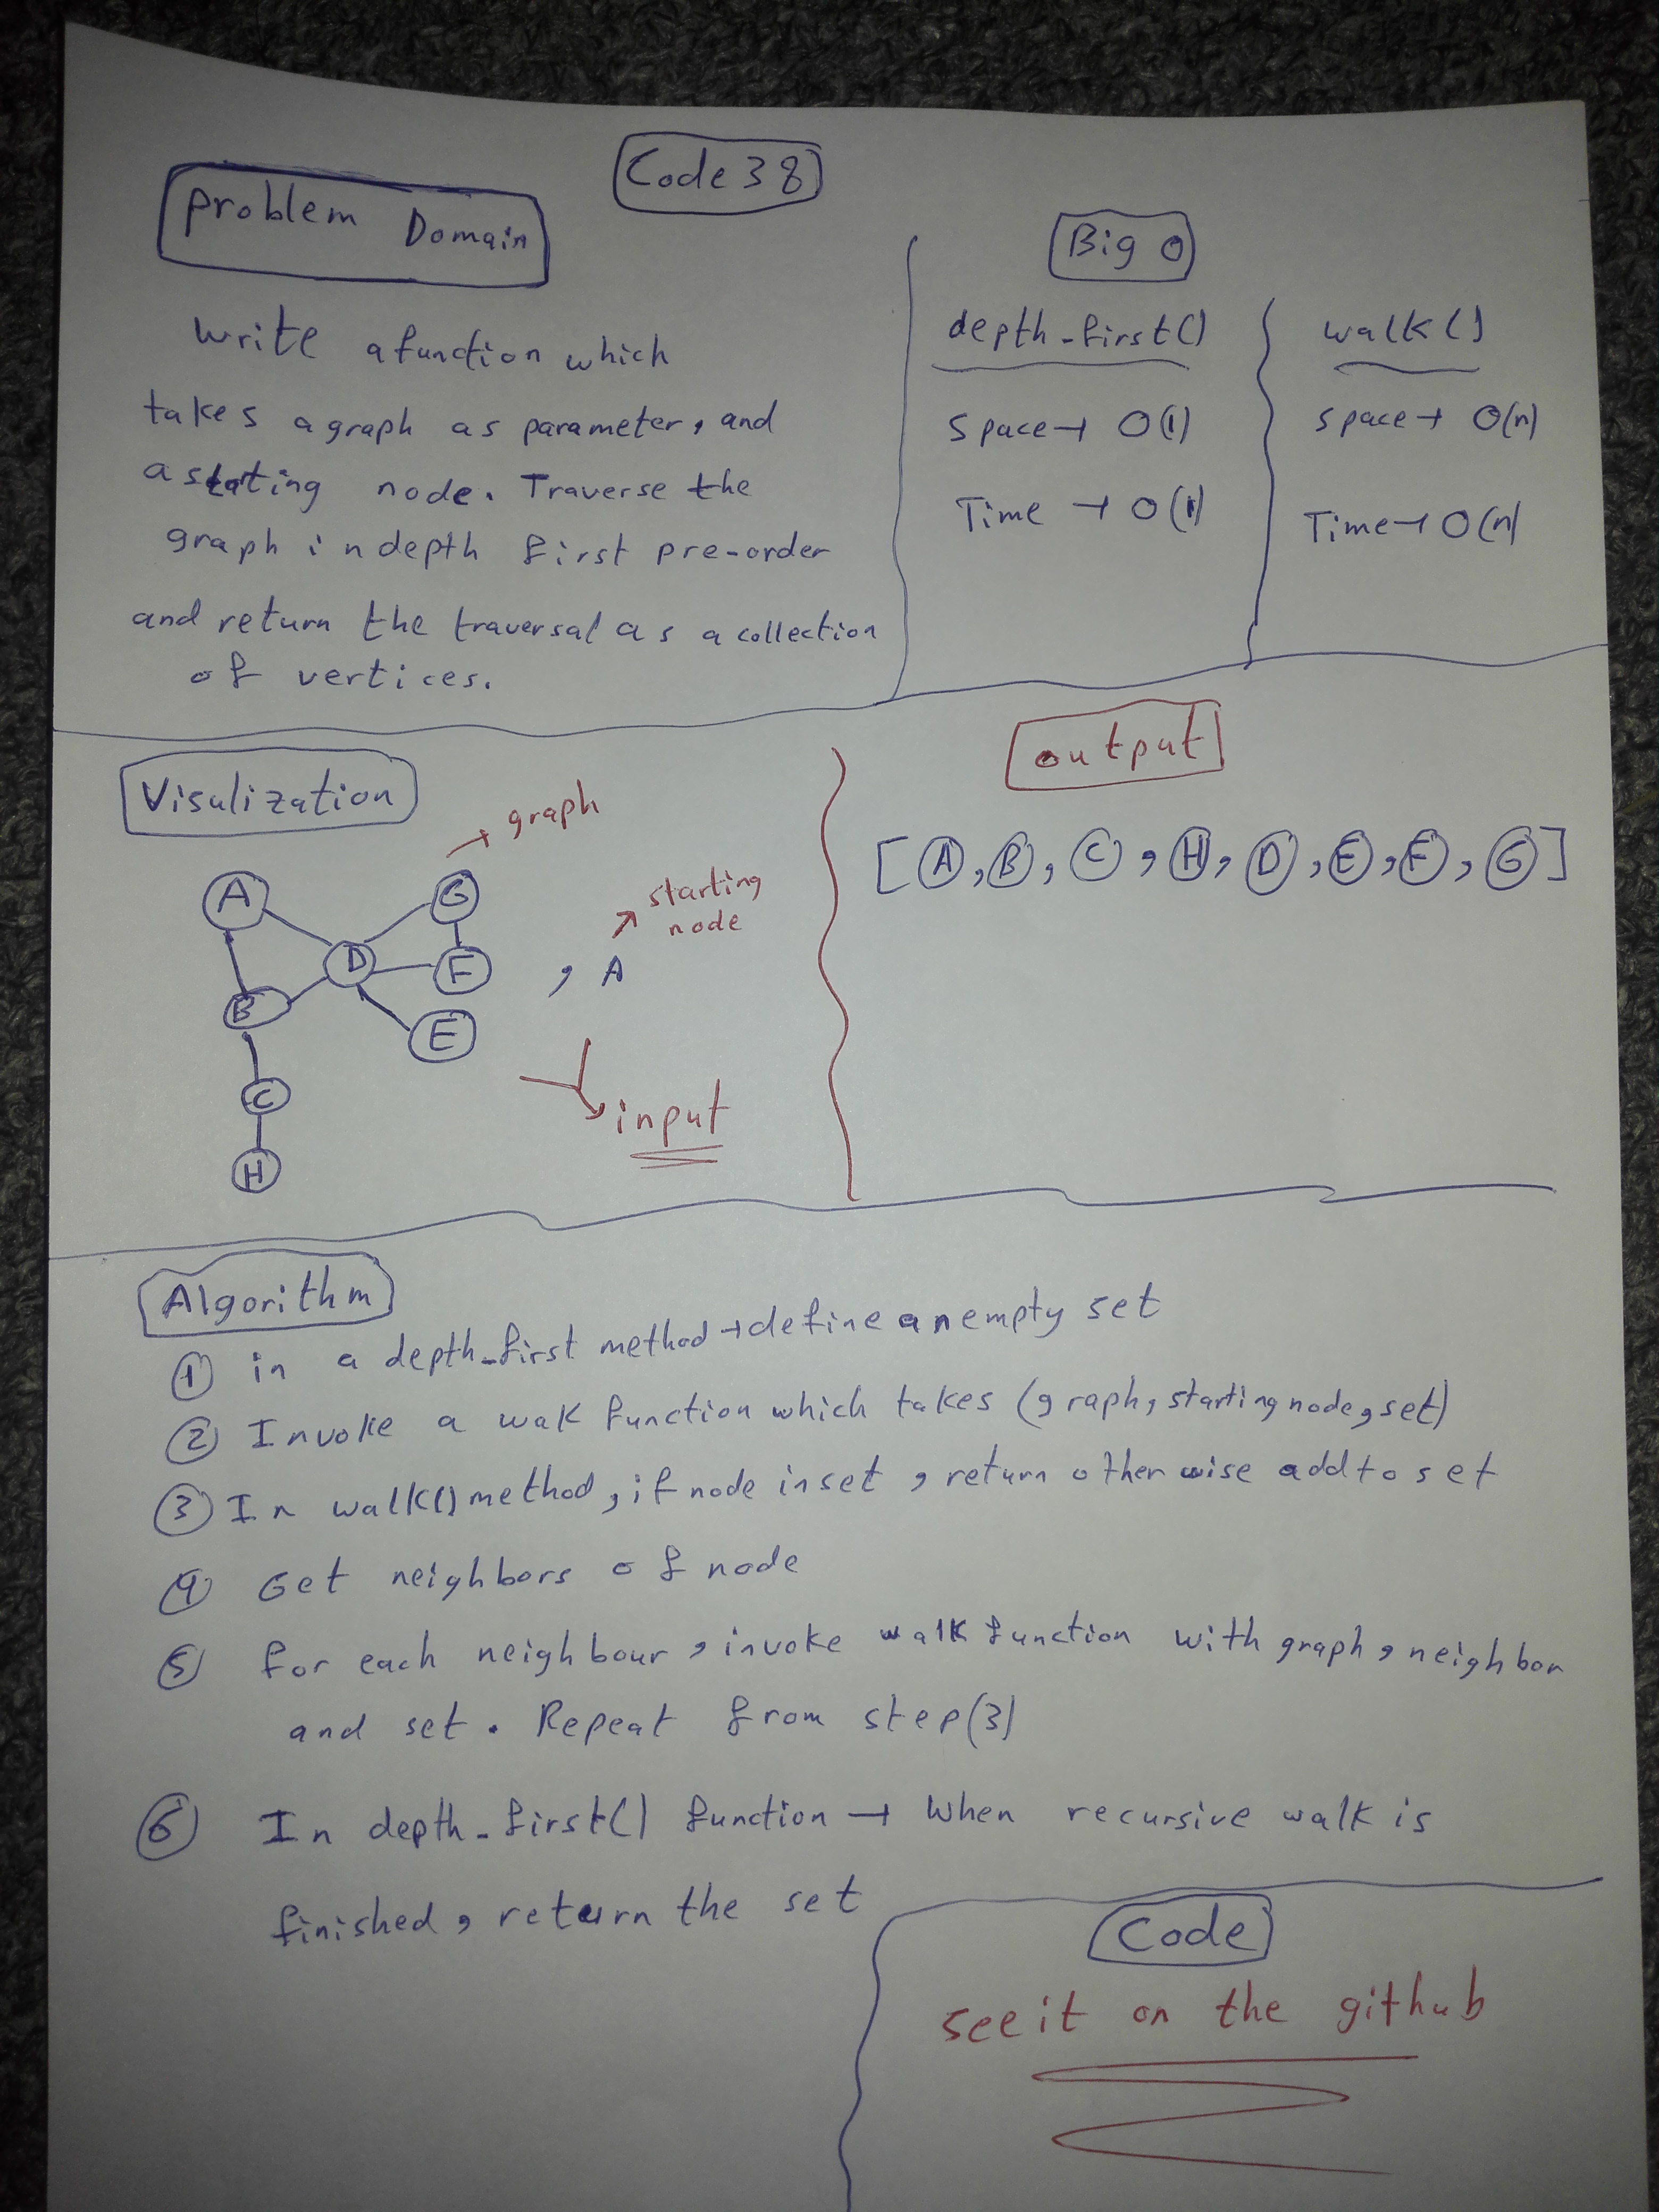 Code 38
Problem Domain
Write a function which
takes a graph as parameter, and
a stating node. Traverse the
graph in depth first pre-order
and return the traversal as a collection
of vertices.
Big O
depth_first()
Space → O(1)
Time → O(1)
walk()
space → O(n)
Time → O(n)
Visulization
→ graph
A
G
D
F
B
E
C
H
starting
node
, A
input
output
[A, B, C, H, D, E, F, G]
Algorithm
1 in a depth_first method → define an empty set
2 Invoke a wak function which takes (graph, starting node, set)
3 In walk() method, if node in set, return otherwise add to set
4 Get neighbors of node
5 for each neighbour, invoke walk function with graph, neighbor
and set. Repeat from step(3)
6 In depth_first() function → When recursive walk is
finished, return the set
Code
see it on the github